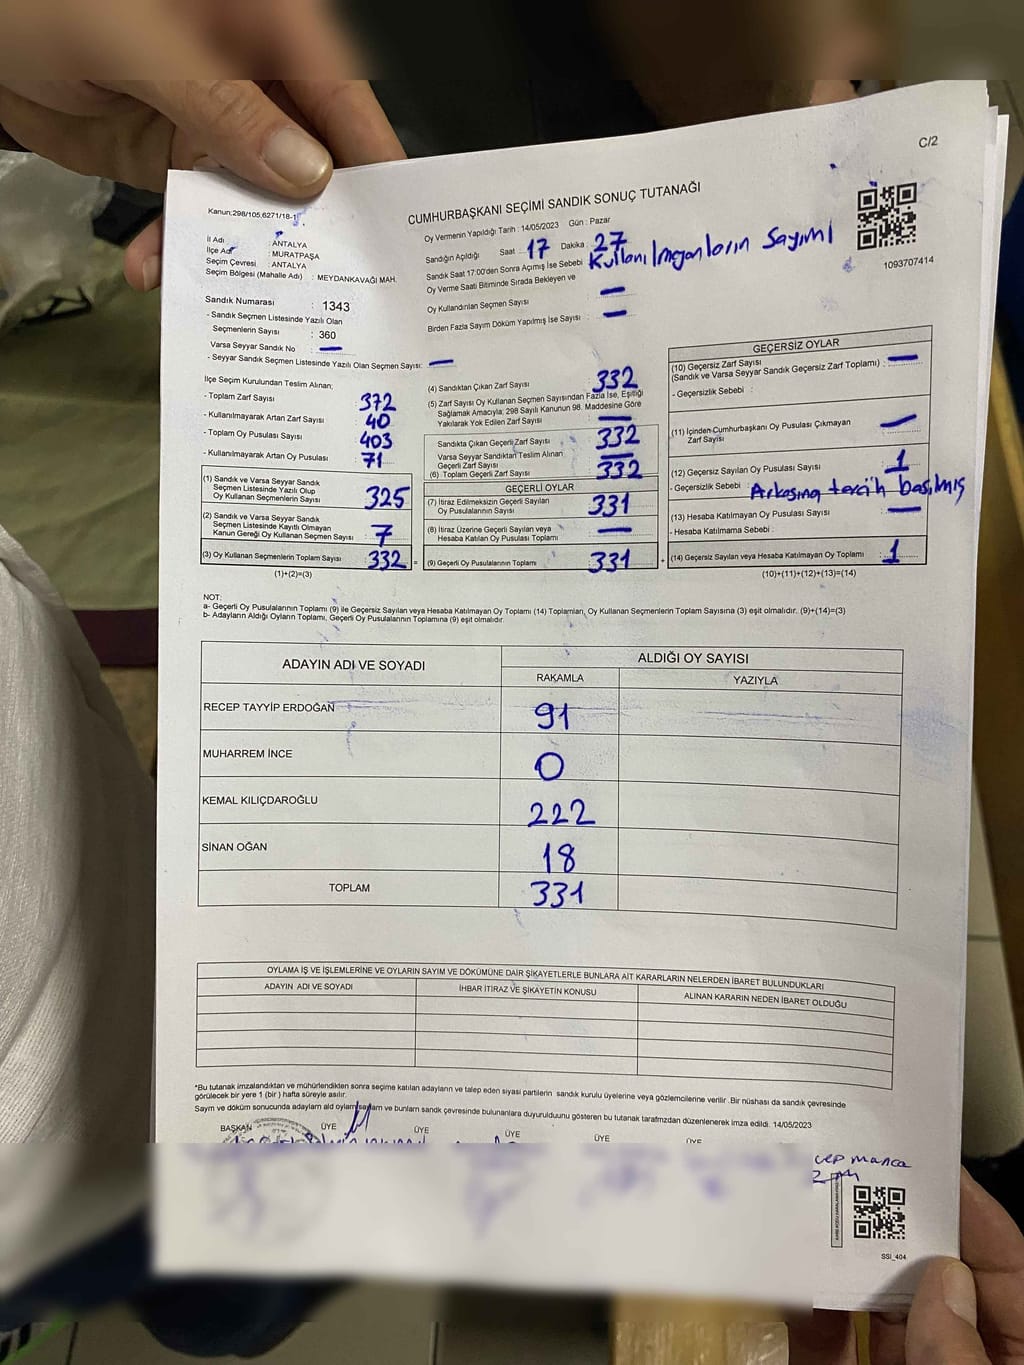 C/2
Kanun:298/105,6271/18-1
CUMHURBAŞKANI SEÇİMİ SANDIK SONUÇ TUTANAĞI
İl Adı : ANTALYA
İlçe Adı : MURATPAŞA
Seçim Çevresi : ANTALYA
Seçim Bölgesi (Mahalle Adı) : MEYDANKAVAĞI MAH.
Oy Vermenin Yapıldığı Tarih : 14/05/2023 Gün : Pazar
Sandığın Açıldığı Saat 17 Dakika : 27
Sandık Saat 17:00'den Sonra Açımış İse Sebebi : Kullanılmayanların Sayımı
Oy Verme Saati Bitiminde Sırada Bekleyen ve
Oy Kullandırılan Seçmen Sayısı : —
Birden Fazla Sayım Döküm Yapılmış İse Sayısı : —
1093707414
Sandık Numarası : 1343
- Sandık Seçmen Listesinde Yazılı Olan
Seçmenlerin Sayısı : 360
Varsa Seyyar Sandık No : —
- Seyyar Sandık Seçmen Listesinde Yazılı Olan Seçmen Sayısı: —
İlçe Seçim Kurulundan Teslim Alınan;
- Toplam Zarf Sayısı : 372
- Kullanılmayarak Artan Zarf Sayısı : 40
- Toplam Oy Pusulası Sayısı : 403
- Kullanılmayarak Artan Oy Pusulası : 71
(1) Sandık ve Varsa Seyyar Sandık
Seçmen Listesinde Yazılı Olup
Oy Kullanan Seçmenlerin Sayısı : 325
(2) Sandık ve Varsa Seyyar Sandık
Seçmen Listesinde Kayıtlı Olmayan
Kanun Gereği Oy Kullanan Seçmen Sayısı : 7
(3) Oy Kullanan Seçmenlerin Toplam Sayısı : 332 =
(1)+(2)=(3)
(4) Sandıktan Çıkan Zarf Sayısı : 332
(5) Zarf Sayısı Oy Kullanan Seçmen Sayısından Fazla İse, Eşitliği
Sağlamak Amacıyla; 298 Sayılı Kanunun 98. Maddesine Göre
Yakılarak Yok Edilen Zarf Sayısı : —
Sandıkta Çıkan Geçerli Zarf Sayısı : 332
Varsa Seyyar Sandıktan Teslim Alınan
Geçerli Zarf Sayısı : —
(6) Toplam Geçerli Zarf Sayısı : 332
GEÇERLİ OYLAR
(7) İtiraz Edilmeksizin Geçerli Sayılan
Oy Pusulalarının Sayısı : 331
(8) İtiraz Üzerine Geçerli Sayılan veya
Hesaba Katılan Oy Pusulası Toplamı : —
(9) Geçerli Oy Pusulalarının Toplamı : 331 +
GEÇERSİZ OYLAR
(10) Geçersiz Zarf Sayısı
(Sandık ve Varsa Seyyar Sandık Geçersiz Zarf Toplamı) : —
- Geçersizlik Sebebi :
(11) İçinden Cumhurbaşkanı Oy Pusulası Çıkmayan
Zarf Sayısı : —
(12) Geçersiz Sayılan Oy Pusulası Sayısı : 1
- Geçersizlik Sebebi : Arkasına tercih basılmış
(13) Hesaba Katılmayan Oy Pusulası Sayısı : —
- Hesaba Katılmama Sebebi :
(14) Geçersiz Sayılan veya Hesaba Katılmayan Oy Toplamı : 1
(10)+(11)+(12)+(13)=(14)
NOT:
a- Geçerli Oy Pusulalarının Toplamı (9) ile Geçersiz Sayılan veya Hesaba Katılmayan Oy Toplamı (14) Toplamları, Oy Kullanan Seçmenlerin Toplam Sayısına (3) eşit olmalıdır. (9)+(14)=(3)
b- Adayların Aldığı Oyların Toplamı, Geçerli Oy Pusulalarının Toplamına (9) eşit olmalıdır.
ADAYIN ADI VE SOYADI ALDIĞI OY SAYISI
RAKAMLA YAZIYLA
RECEP TAYYİP ERDOĞAN 91
MUHARREM İNCE 0
KEMAL KILIÇDAROĞLU 222
SİNAN OĞAN 18
TOPLAM 331
OYLAMA İŞ VE İŞLEMLERİNE VE OYLARIN SAYIM VE DÖKÜMÜNE DAİR ŞİKAYETLERLE BUNLARA AİT KARARLARIN NELERDEN İBARET BULUNDUKLARI
ADAYIN ADI VE SOYADI İHBAR İTİRAZ VE ŞİKAYETİN KONUSU ALINAN KARARIN NEDEN İBARET OLDUĞU
*Bu tutanak imzalandıktan ve mühürlendikten sonra seçime katılan adayların ve talep eden siyasi partilerin sandık kurulu üyelerine veya gözlemcilerine verilir .Bir nüshası da sandık çevresinde
görülecek bir yere 1 (bir ) hafta süreyle asılır.
Sayım ve döküm sonucunda adayların ald oyların sayısı ve bunların sandık çevresinde bulunanlara duyurulduğunu gösteren bu tutanak tarafımızdan düzenlenerek imza edildi. 14/05/2023
BAŞKAN ÜYE ÜYE ÜYE ÜYE ÜYE
SSI_404